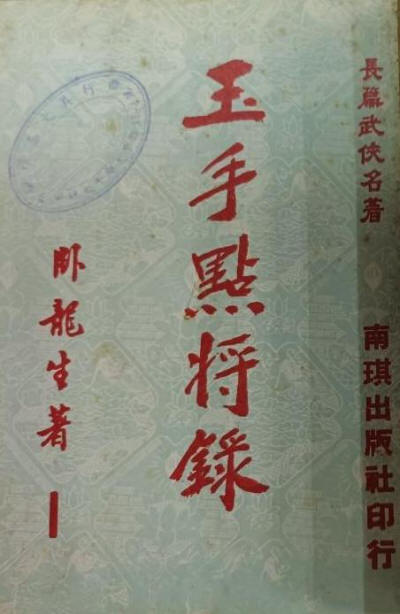 長篇武俠名著
南琪出版社印行
玉手點将錄
卧龍生著
1